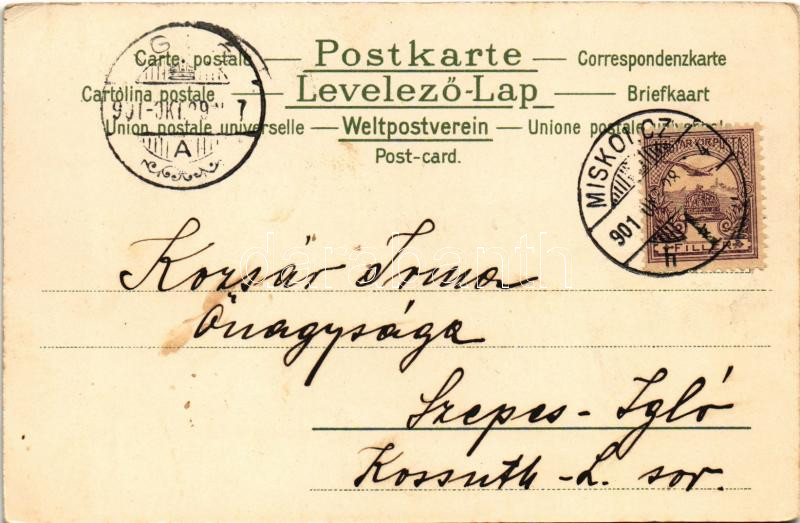 Carte postale — Postkarte — Correspondenzkarte
Cartolina postale — Levelező-Lap — Briefkaart
Union postale universelle — Weltpostverein — Unione postale universale
Post-card.
MISKOLCZ
901
A
FILLÉR
darabanth
Korsár Toma
Őnagysága
Szepes-Igló
Kossuth-L. sor.